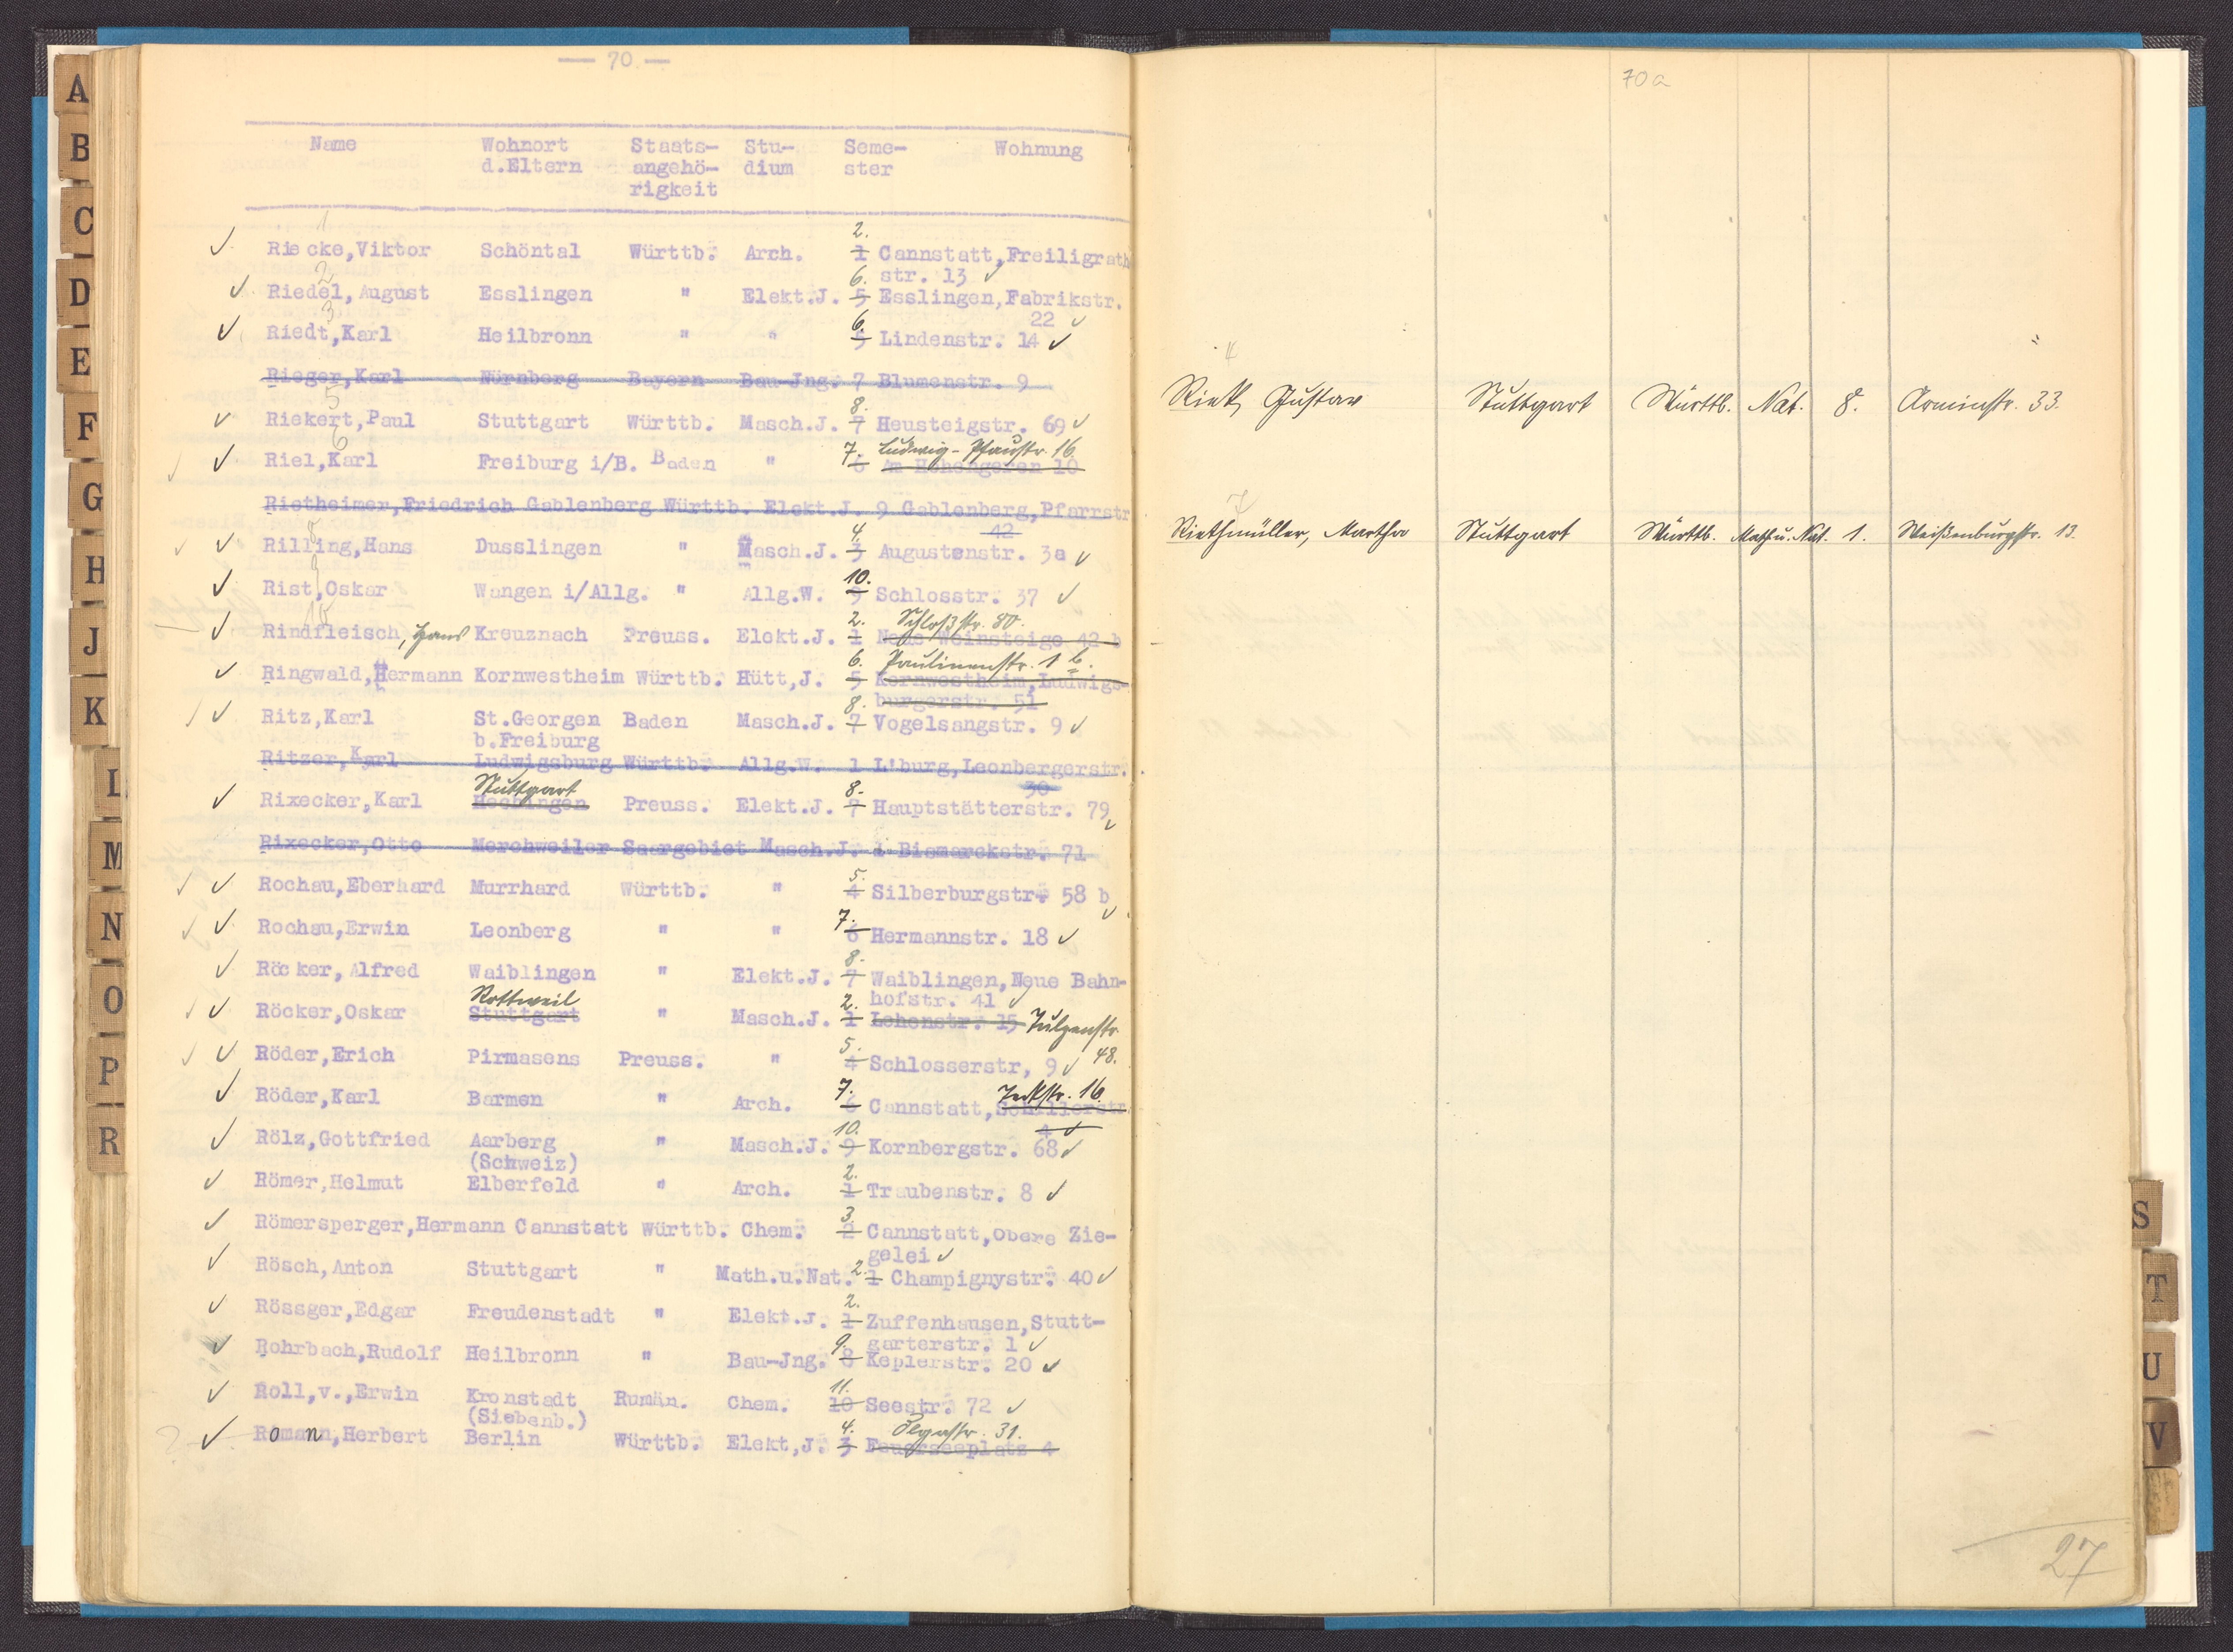 — 70 —
Name Wohnort Staats- Stu- Seme- Wohnung
d.Eltern angehö- dium ster
rigkeit
1
2.
Riecke,Viktor Schöntal Württb. Arch. 1 Cannstatt,Freiligrath
2 6. str. 13
Riedel, August Esslingen " Elekt.J. 5 Esslingen,Fabrikstr.
3 6. 22
Riedt,Karl Heilbronn " " 5 Lindenstr. 14
Rieger,Karl Nürnberg Bayern Bau-Jng. 7 Blumenstr. 9
5 8.
Riekert,Paul Stuttgart Württb. Masch.J. 7 Heusteigstr. 69
6 7. Ludwig-Pfaustr. 16.
Riel,Karl Freiburg i/B. Baden " 6 Am Hohengeren 10
Rietheimer,Friedrich Gablenberg Württb. Elekt.J. 9 Gablenberg,Pfarrstr
8 4. 42
Rilling,Hans Dusslingen " Masch.J. 3 Augustenstr. 3a
9 10.
Rist,Oskar Wangen i/Allg. " Allg.W. 9 Schlosstr. 37
10 2. Schloßstr. 80.
Rindfleisch, Hans Kreuznach Preuss. Elekt.J. 1 Neue Weinsteige 42 b
6. Paulinenstr. 1 b.
Ringwald,Hermann Kornwestheim Württb. Hütt,J. 5 Kornwestheim,Ludwigs-
8. burgerstr. 51
Ritz,Karl St.Georgen Baden Masch.J. 7 Vogelsangstr. 9
b.Freiburg
Ritzer,Karl Ludwigsburg Württb. Allg.W. 1 L'burg,Leonbergerstr.
Stuttgart 8. 30
Rixecker,Karl Hechingen Preuss. Elekt.J. 7 Hauptstätterstr. 79
Rixecker,Otto Merchweiler Saargebiet Masch.J. 1 Bismarckstr. 71
5.
Rochau,Eberhard Murrhard Württb. " 4 Silberburgstr. 58 b
7.
Rochau,Erwin Leonberg " " 6 Hermannstr. 18
8.
Röcker, Alfred Waiblingen " Elekt.J. 7 Waiblingen,Neue Bahn-
Rottweil 2. hofstr. 41
Röcker,Oskar Stuttgart " Masch.J. 1 Lehenstr. 15 Sulzenstr.
5. 48.
Röder,Erich Pirmasens Preuss. " 4 Schlosserstr, 9
7. 16.
Röder,Karl Barmen " Arch. 6 Cannstatt,Schillerstr
10. 4
Rölz,Gottfried Aarberg " Masch.J. 9 Kornbergstr. 68
(Schweiz) 2.
Römer,Helmut Elberfeld " Arch. 1 Traubenstr. 8
3.
Römersperger,Hermann Cannstatt Württb. Chem. 2 Cannstatt,Obere Zie-
gelei
Rösch,Anton Stuttgart " Math.u.Nat. 2. 1 Champignystr. 40
2.
Rössger,Edgar Freudenstadt " Elekt.J. 1 Zuffenhausen,Stutt-
9. garterstr. 1
Rohrbach,Rudolf Heilbronn " Bau-Jng. 8 Keplerstr. 20
11.
Roll,v.,Erwin Kronstadt Rumän. Chem. 10 Seestr. 72
(Siebenb.) 4. 31.
Romann,Herbert Berlin Württb. Elekt,J. 3 Feuerseeplatz 4
70a
4
Rieth, Gustav Stuttgart Württb. Nat. 8. Arminstr. 33.
7
Riethmüller, Martha Stuttgart Württb. Math u. Nat. 1. Weißenburgstr. 13.
27
A
B
C
D
E
F
G
H
J
K
L
M
N
O
P
R
S
T
U
V